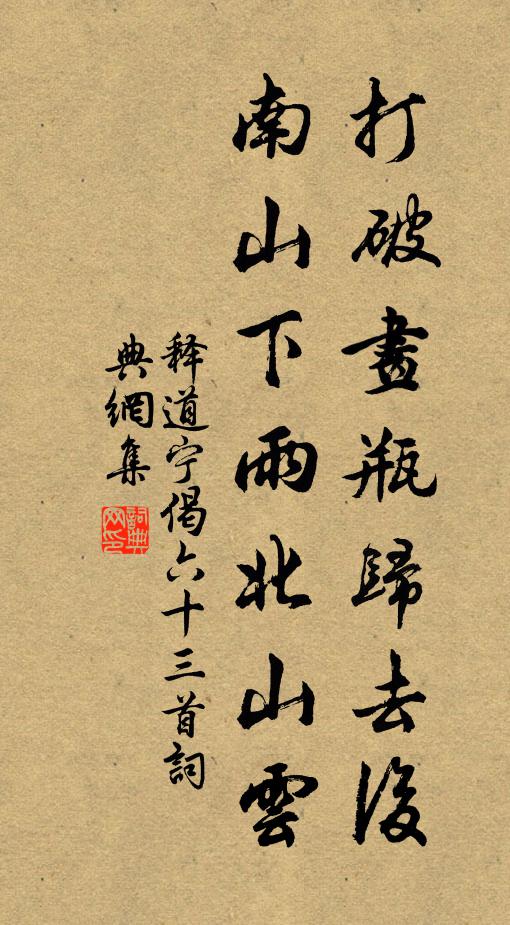 打破畫瓶歸去後
南山下雨北山雲
释道宁偈六十三首詞
典網集
詞典網印